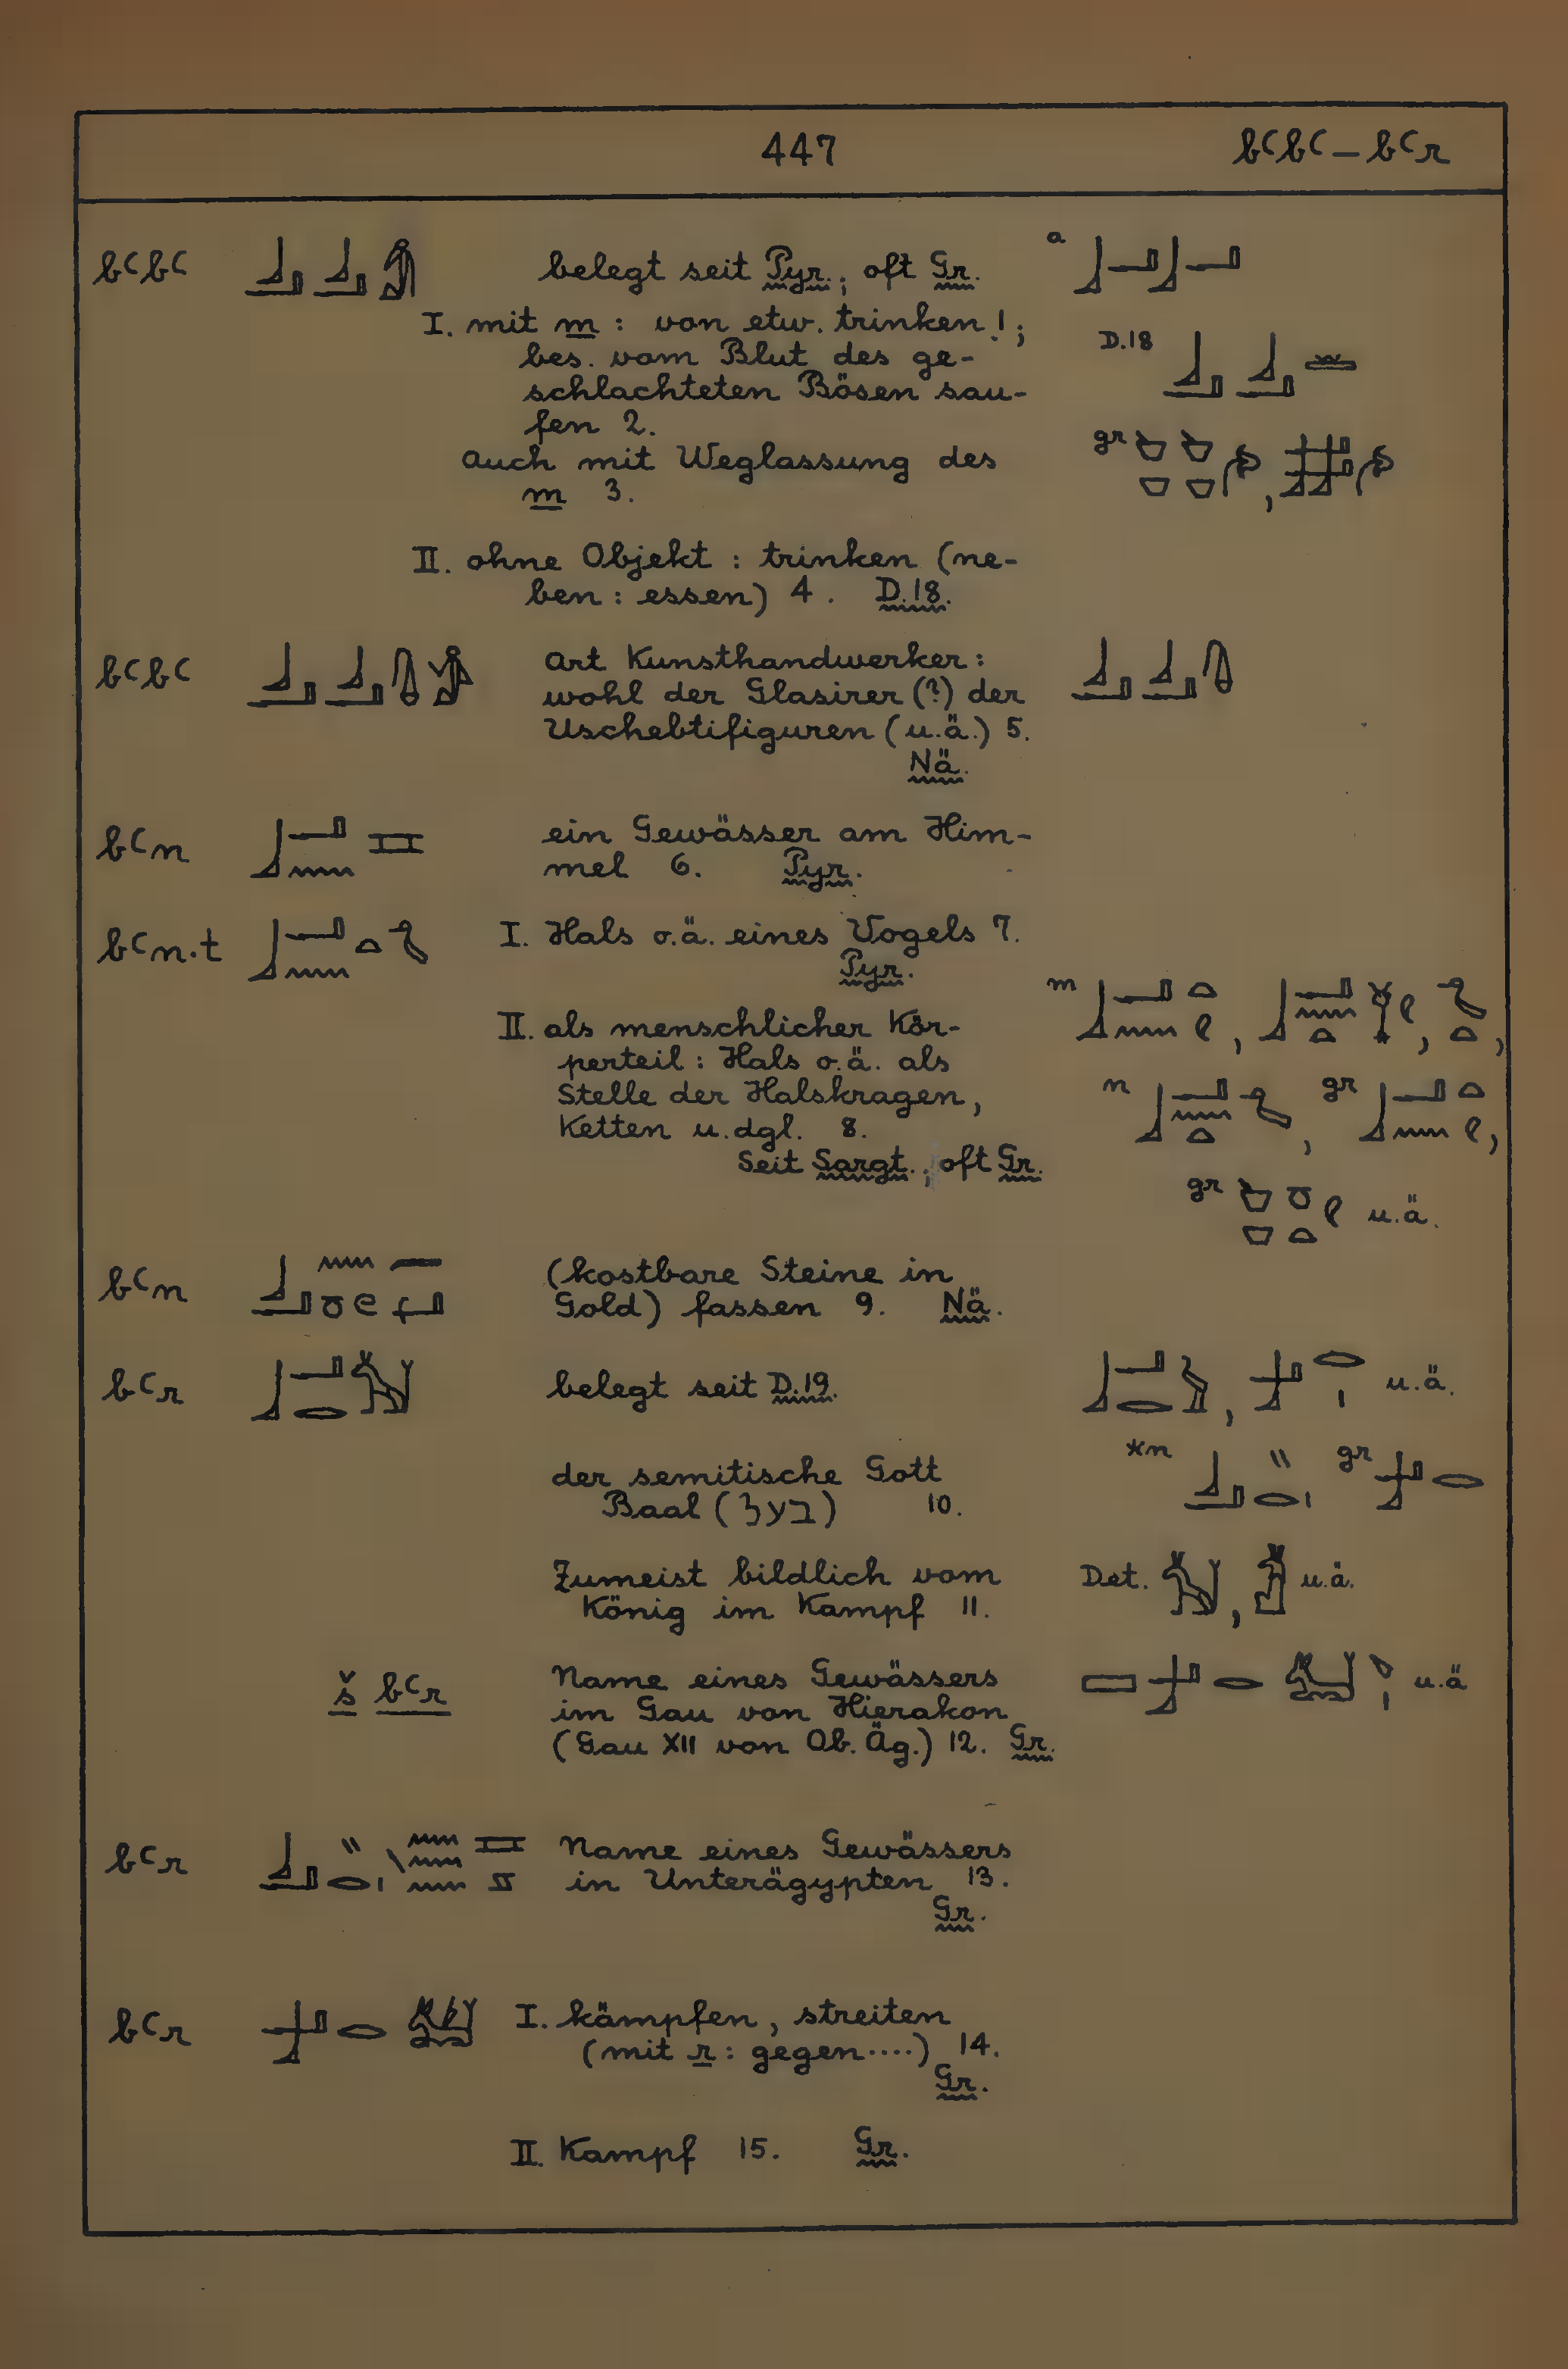 447 bꜥbꜥ – bꜥr
bꜥbꜥ belegt seit Pyr.; oft Gr. a
I. mit m : von etw. trinken 1;
bes. vom Blut des ge- D.18
schlachteten Bösen sau-
fen 2. gr
auch mit Weglassung des
m 3.
II. ohne Objekt : trinken (ne-
ben : essen) 4. D.18.
bꜥbꜥ Art Kunsthandwerker :
wohl der Glasirer (?) der
Uschebtifiguren (u.ä.) 5.
Nä.
bꜥn ein Gewässer am Him-
mel 6. Pyr.
bꜥn.t I. Hals o.ä. eines Vogels 7.
Pyr. m
II. als menschlicher Kör-
perteil : Hals o.ä. als
Stelle der Halskragen, n gr
Ketten u.dgl. 8.
Seit Sargt.; oft Gr.
gr u.ä.
bꜥn (kostbare Steine in
Gold) fassen 9. Nä.
bꜥr belegt seit D.19. u.ä.
der semitische Gott *n gr
Baal (בעל) 10.
Zumeist bildlich vom Det. u.ä.
König im Kampf 11.
š bꜥr Name eines Gewässers u.ä
im Gau von Hierakon
(Gau XII von Ob. Äg.) 12. Gr.
bꜥr Name eines Gewässers
in Unterägypten 13.
Gr.
bꜥr I. kämpfen, streiten
(mit r : gegen ....) 14.
Gr.
II. Kampf 15. Gr.